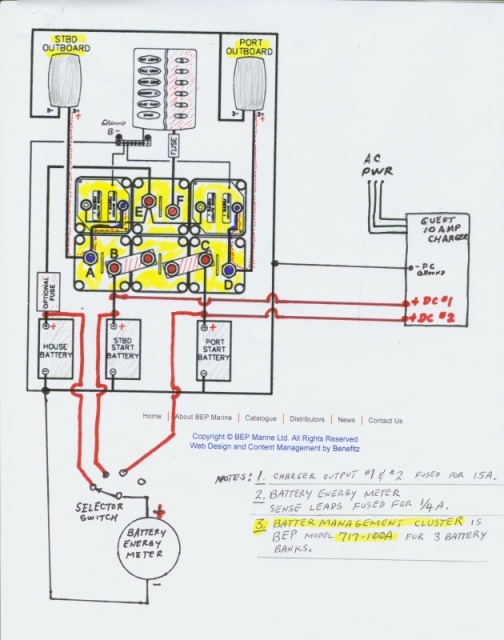 STBD
OUTBOARD
PORT
OUTBOARD
GROUND
B-
FUSE
E
F
A
B
C
D
AC
PWR
GUEST
10 AMP
CHARGER
- DC
GROUND
+ DC #1
+ DC #2
OPTIONAL
FUSE
HOUSE
BATTERY
STBD
START
BATTERY
PORT
START
BATTERY
Home | About BEP Marine | Catalogue | Distributors | News | Contact Us
Copyright © BEP Marine Ltd. All Rights Reserved
Web Design and Content Management by Benefitz
SELECTOR
SWITCH
BATTERY
ENERGY
METER
NOTES: 1. CHARGER OUTPUT #1 & #2 FUSED FOR 15A.
2. BATTERY ENERGY METER
SENSE LEADS FUSED FOR 1/4 A.
3. BATTER MANAGEMENT CLUSTER IS
BEP MODEL 717-100A FOR 3 BATTERY
BANKS.